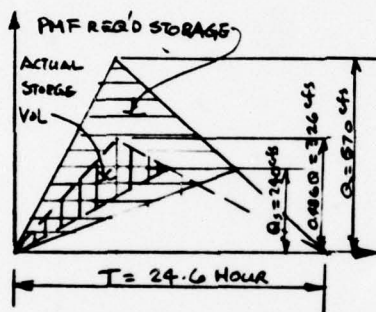 PMF REQ'D STORAGE
ACTUAL
STORGE
VOL
Qs = 240 cfs
0.486Q = 326 cfs
Q = 670 cfs
T = 24.6 HOUR